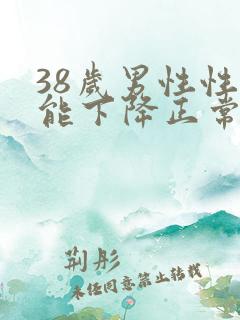 38歲男性性
能下降正常
荆彤
未经同意禁止转载